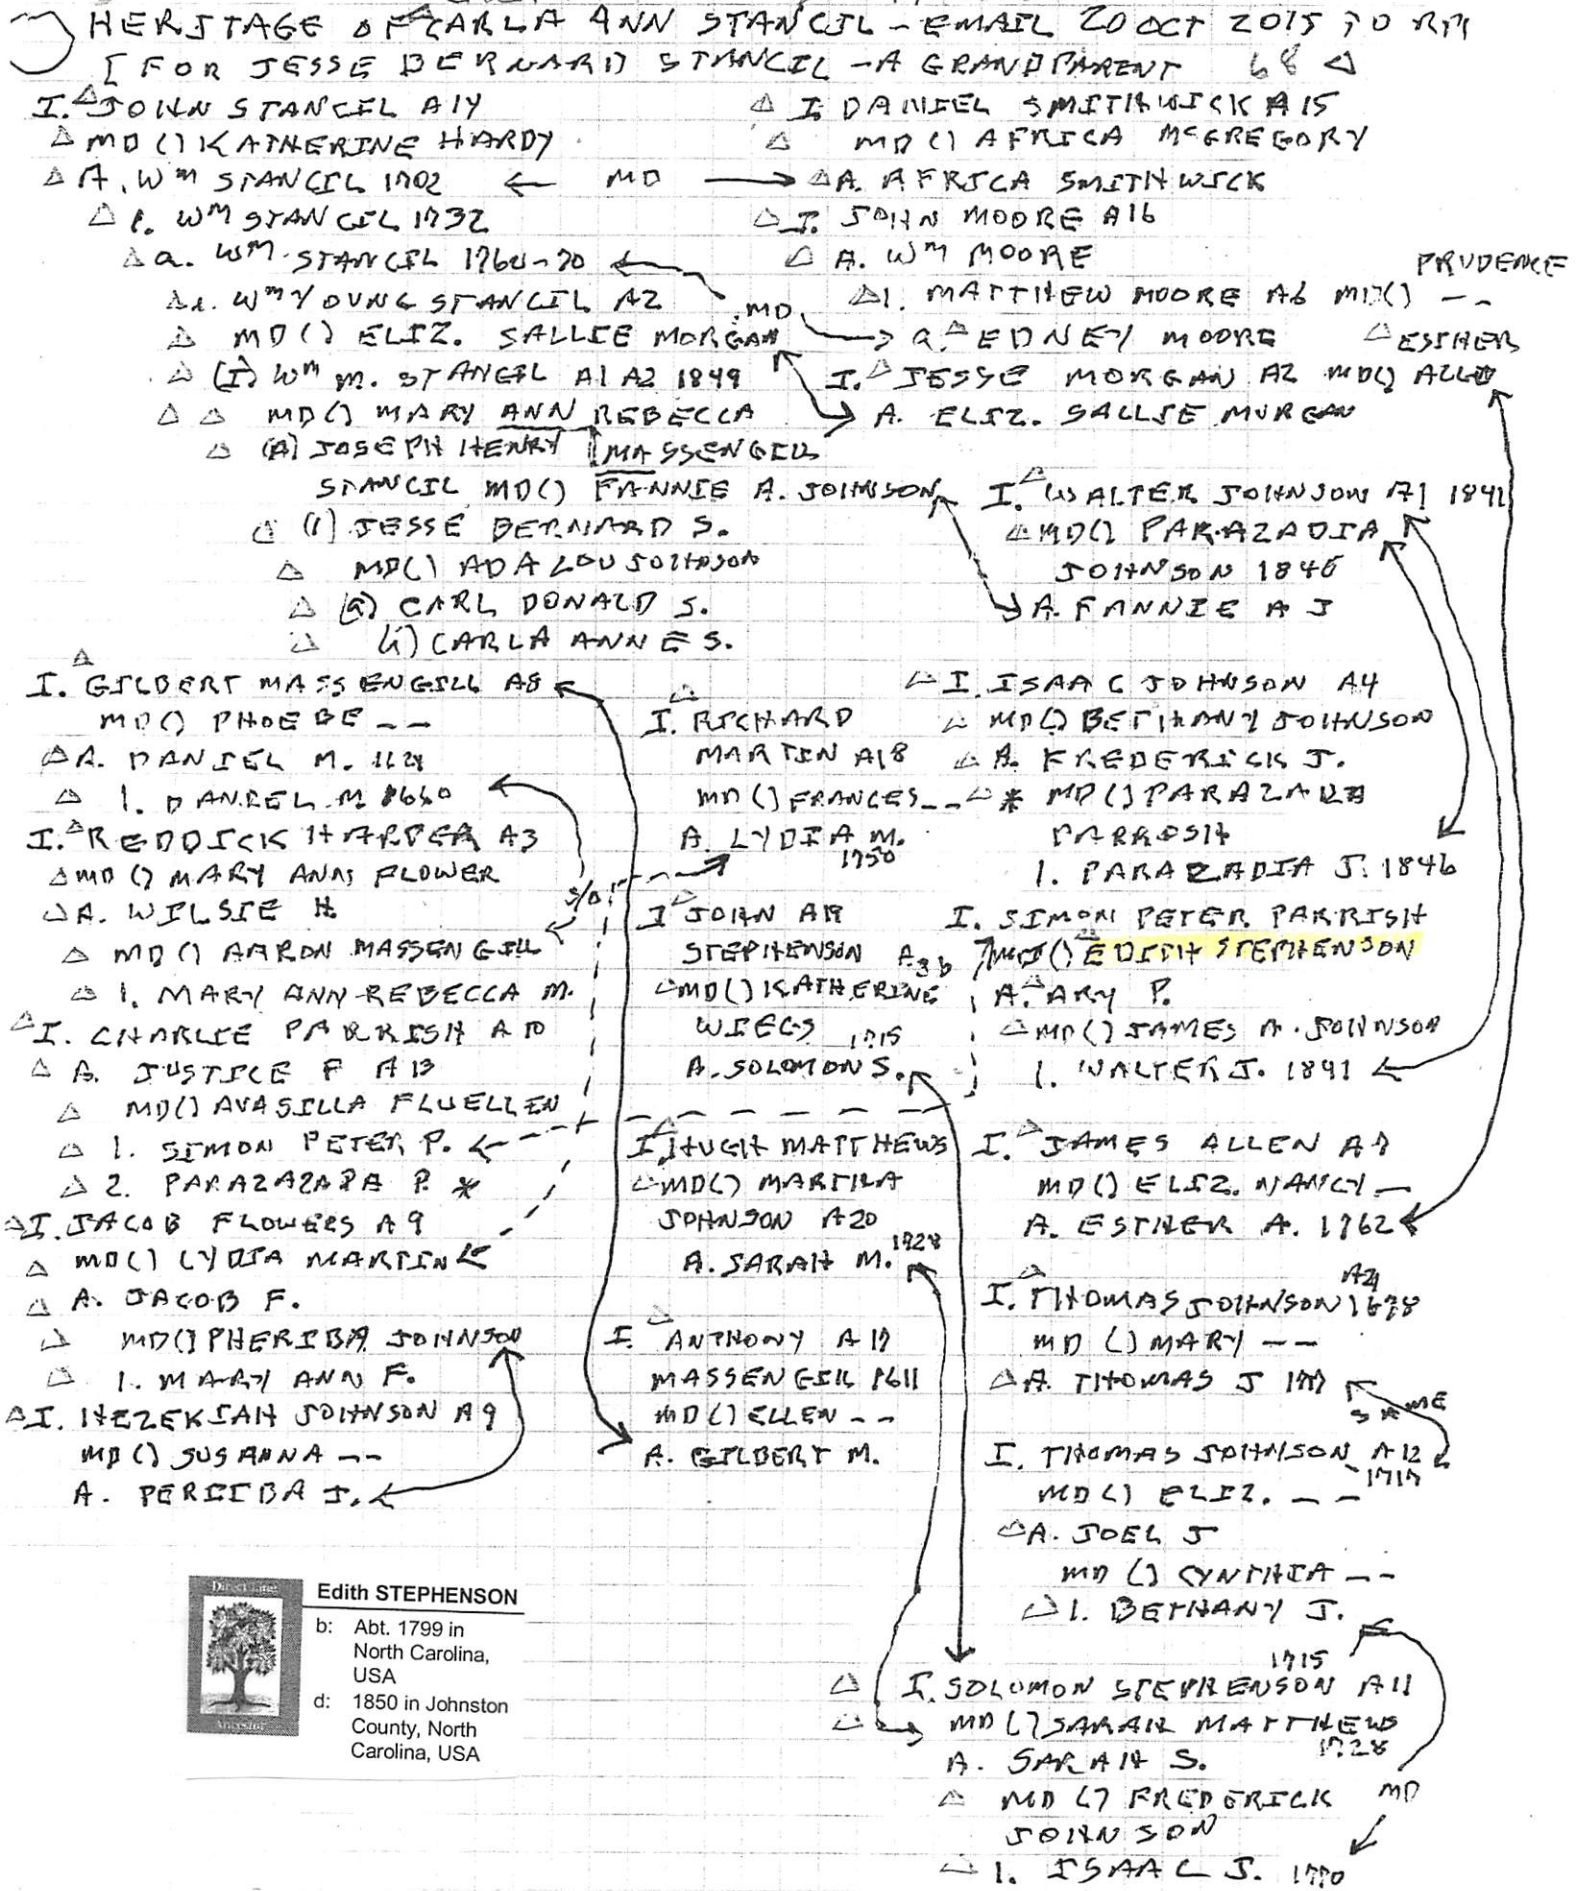 HERITAGE OF CARLA ANN STANCIL - EMAIL 20 OCT 2015 TO RM
[FOR JESSE BERNARD STANCIL - A GRANDPARENT 68
I. JOHN STANCIL A14
MD () KATHERINE HARDY
A. WM STANCIL 1702 ← MD →
1. WM STANCIL 1732
a. WM. STANCIL 1760-70
MD
1. WM YOUNG STANCIL A2
MD () ELIZ. SALLIE MORGAN
(I) WM M. STANCIL A1 A2 1849
MD () MARY ANN REBECCA
MASSENGILL
(A) JOSEPH HENRY
STANCIL MD () FANNIE A. JOHNSON
(1) JESSE BERNARD S.
MD () ADA LOU JOHNSON
(a) CARL DONALD S.
(i) CARLA ANNE S.
I. DANIEL SMITHWICK A15
MD () AFRICA McGREGORY
A. AFRICA SMITHWICK
I. JOHN MOORE A16
A. WM MOORE
PRUDENCE
1. MATTHEW MOORE A6 MD () --
a. EDNEY MOORE
ESTHER
I. JESSE MORGAN A2 MD () ALLEN
A. ELIZ. SALLIE MORGAN
I. WALTER JOHNSON A1 1841
MD () PARAZADIA
JOHNSON 1846
A. FANNIE A J
I. GILBERT MASSENGILL A8
MD () PHOEBE --
A. DANIEL M.
1. DANIEL M
I. REDDICK HARPER A3
MD () MARY ANN FLOWER
A. WILSIE H.
MD () AARON MASSENGILL
1. MARY ANN REBECCA M.
I. CHARLIE PARRISH A10
A. JUSTICE P A13
MD () AVASILLA FLUELLEN
1. SIMON PETER P.
2. PARAZAZADA P. *
I. JACOB FLOWERS A9
MD () LYDIA MARTIN
A. JACOB F.
MD () PHERIBA JOHNSON
1. MARY ANN F.
I. HEZEKIAH JOHNSON A9
MD () SUSANNA --
A. PERIIBA J.
S/O
I. RICHARD
MARTIN A18
MD () FRANCES --
A. LYDIA M.
1750
I JOHN A19
STEPHENSON
MD () KATHERINE
WIEGS
1715
A. SOLOMON S.
I. HUGH MATTHEWS
MD () MARTHA
JOHNSON A20
A. SARAH M. 1728
I. ANTHONY A17
MASSENGILL 1611
MD () ELLEN --
A. GILBERT M.
I. ISAAC JOHNSON A4
MD () BETHANY JOHNSON
A. FREDERICK J.
* MD () PARAZADA
PARROSH
1. PARAZADIA J. 1846
I. SIMON PETER PARRISH
A3b MD () EDITH STEPHENSON
A. ARY P.
MD () JAMES A. JOHNSON
1. WALTER J. 1841
I. JAMES ALLEN A7
MD () ELIZ. NANCY --
A. ESTHER A. 1762
I. THOMAS JOHNSON 1678 A21
MD () MARY --
A. THOMAS J 1717
SAME
I. THOMAS JOHNSON A12
1717
MD () ELIZ. --
A. JOEL J
MD () CYNTHIA --
1. BETHANY J.
1715
I. SOLOMON STEPHENSON A11
MD () SARAH MATTHEWS
1728
A. SARAH S.
MD () FREDERICK
JOHNSON
MD
1. ISAAC J. 1770
Direct Line
Ancestor
Edith STEPHENSON
b: Abt. 1799 in
North Carolina,
USA
d: 1850 in Johnston
County, North
Carolina, USA